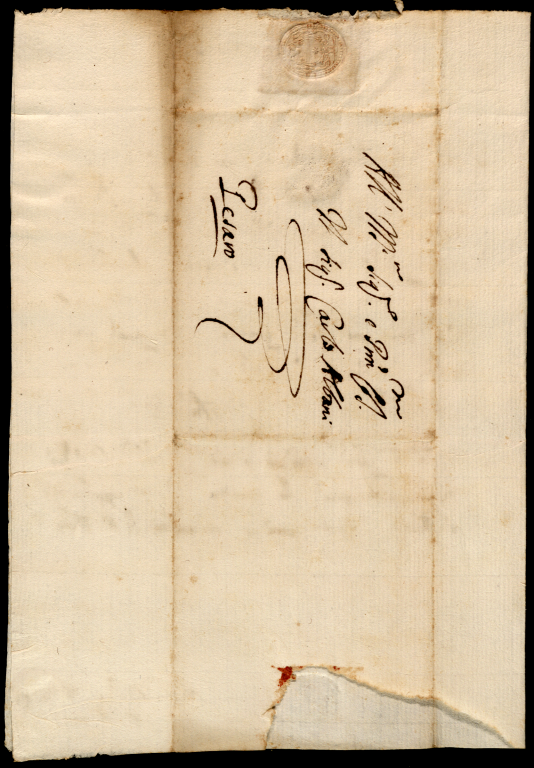 All' Ill.re Sig.r e Pron Col.mo
Il Sig.r Carlo Albani
Pesaro